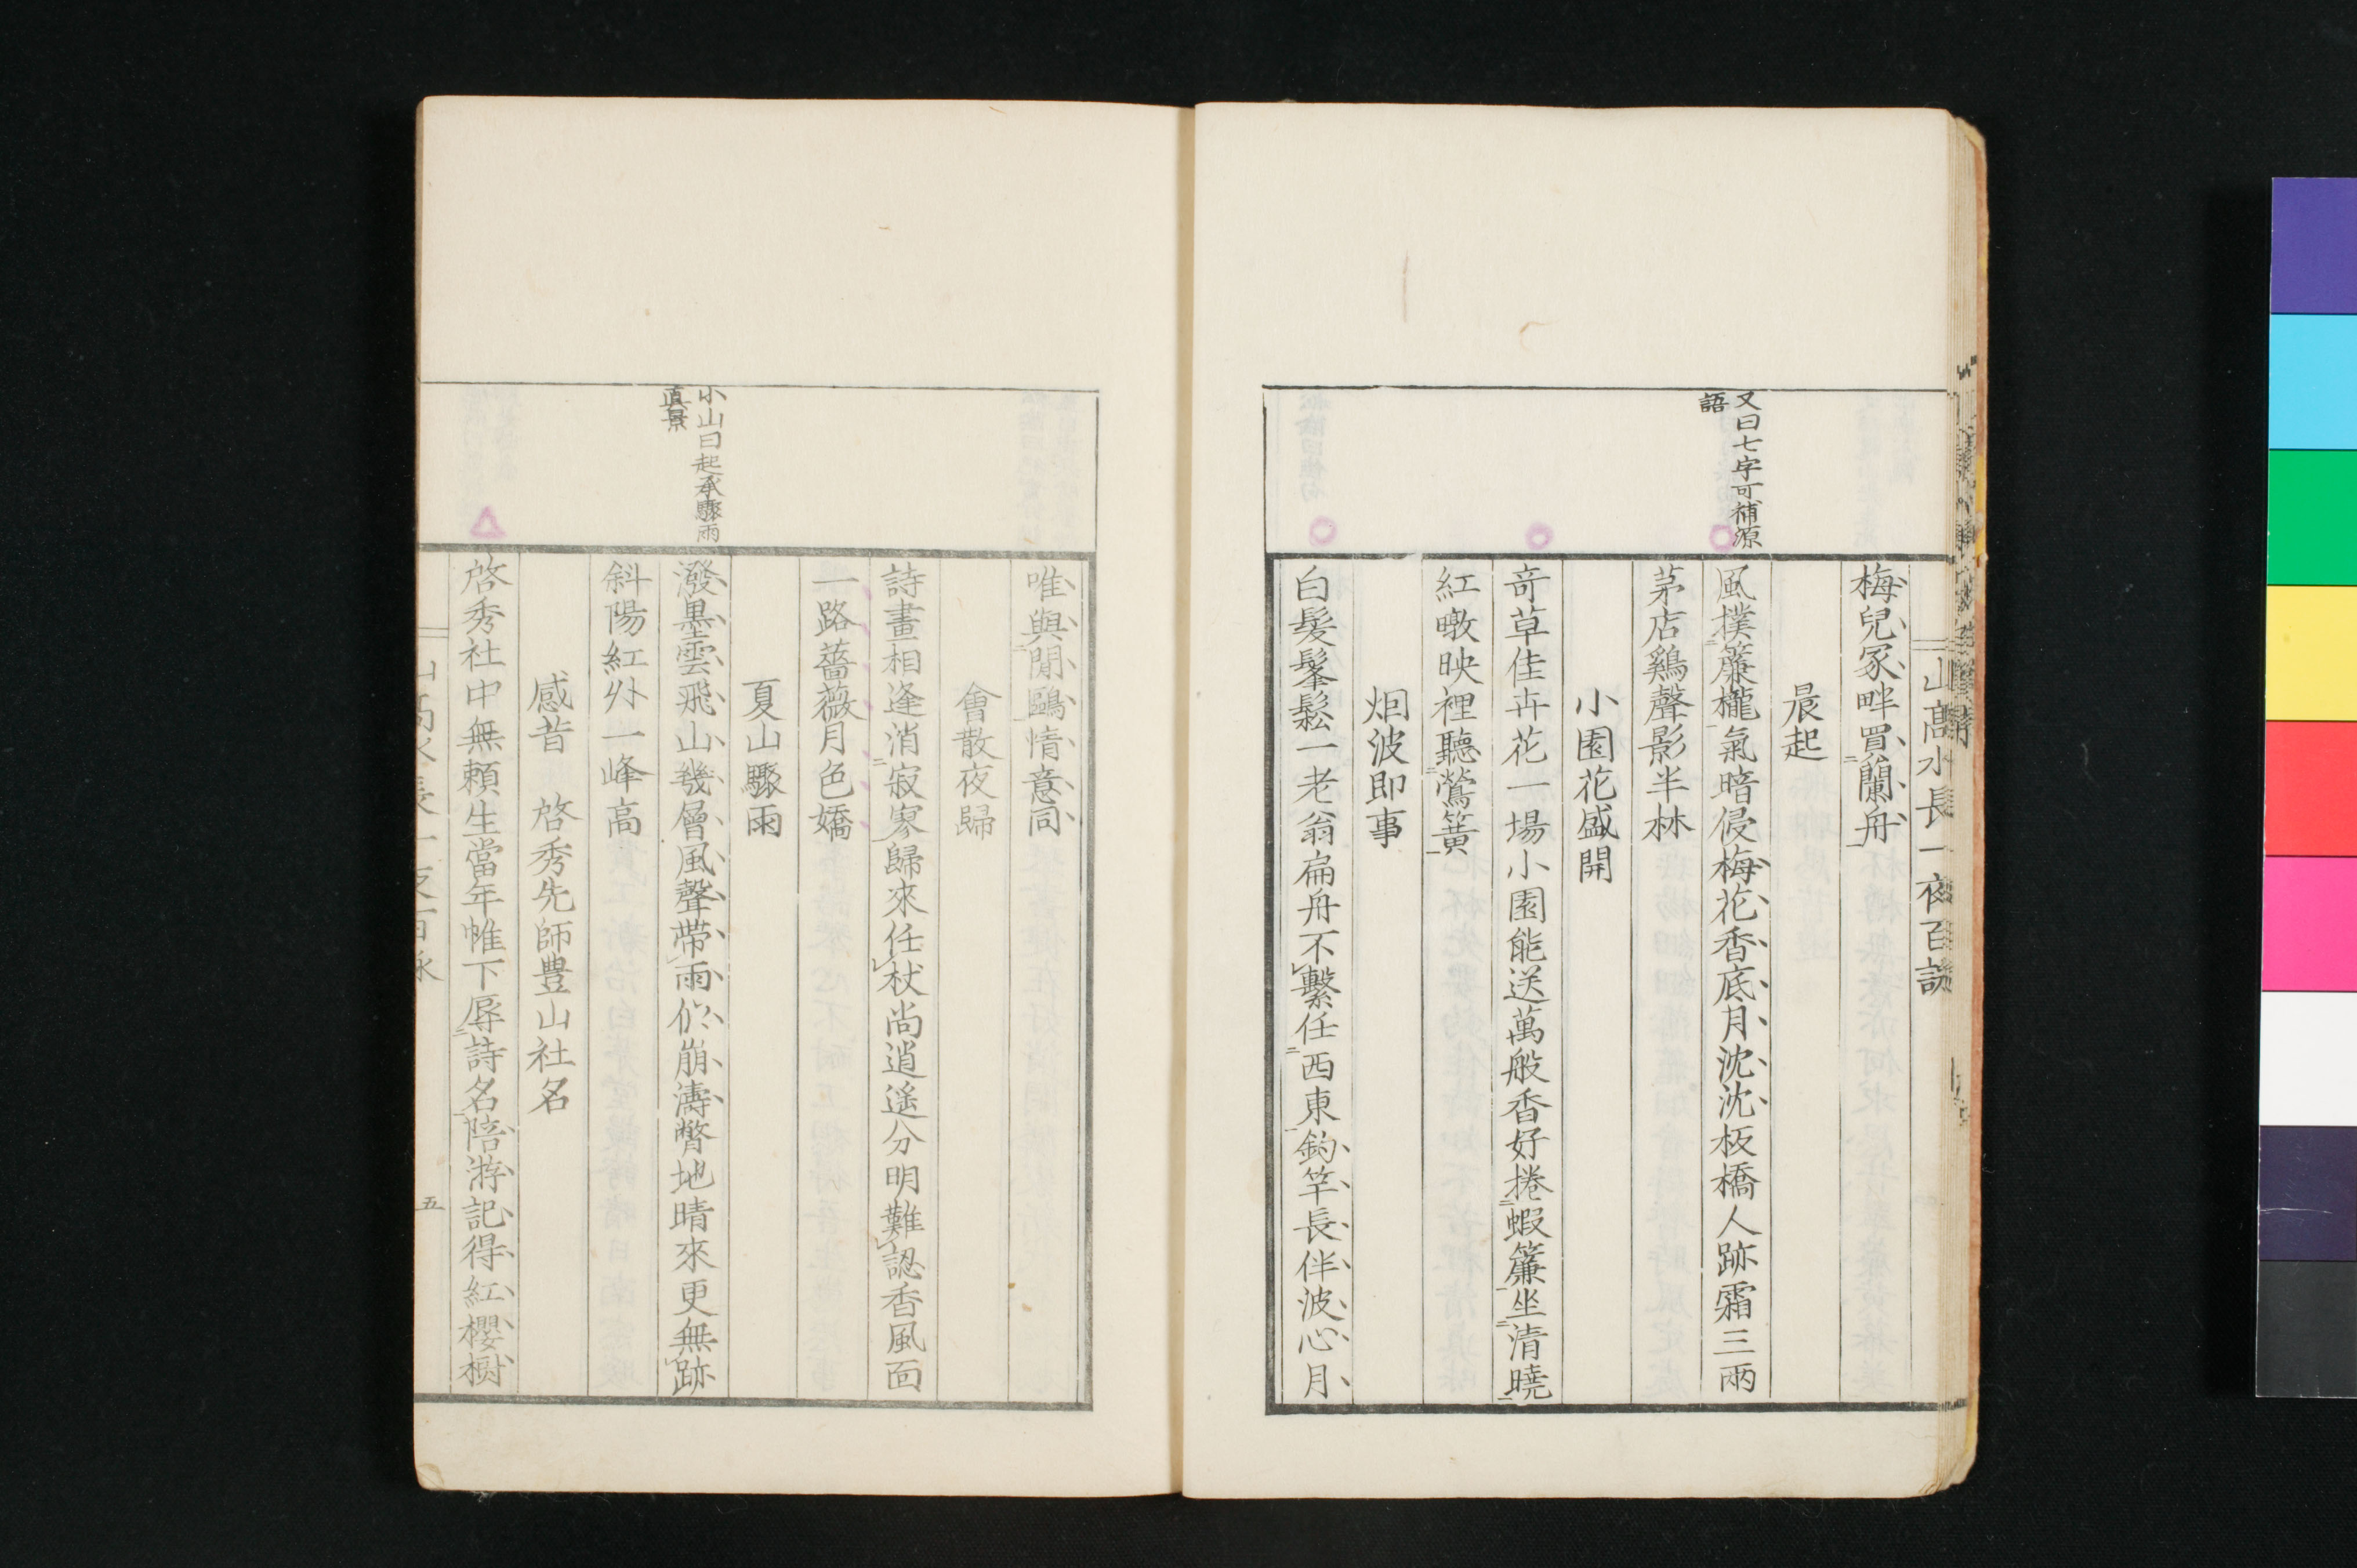 山高水長一夜百詠
梅兒冢畔買蘭舟
晨起
又曰七字可補源
語
風撲簾櫳氣暗侵梅花香底月沈沈板橋人跡霜三兩
茅店鷄聲影半林
小園花盛開
奇草佳卉花一場小園能送萬般香好捲蝦簾坐清曉
紅暾映裡聽鶯簧
烟波即事
白髮髼鬆一老翁扁舟不繫任西東釣竿長伴波心月
唯與閒鷗情意同
會散夜歸
詩畫相逢消寂寥歸來任杖尚逍遙分明難認香風面
一路薔薇月色嬌
夏山驟雨
小山曰起承驟雨
真景
潑墨雲飛山幾層風聲帶雨似崩濤瞥地晴來更無跡
斜陽紅外一峰高
感昔 啓秀先師豊山社名
啓秀社中無賴生當年帷下辱詩名陪游記得紅櫻樹
山高水長一夜百詠
五